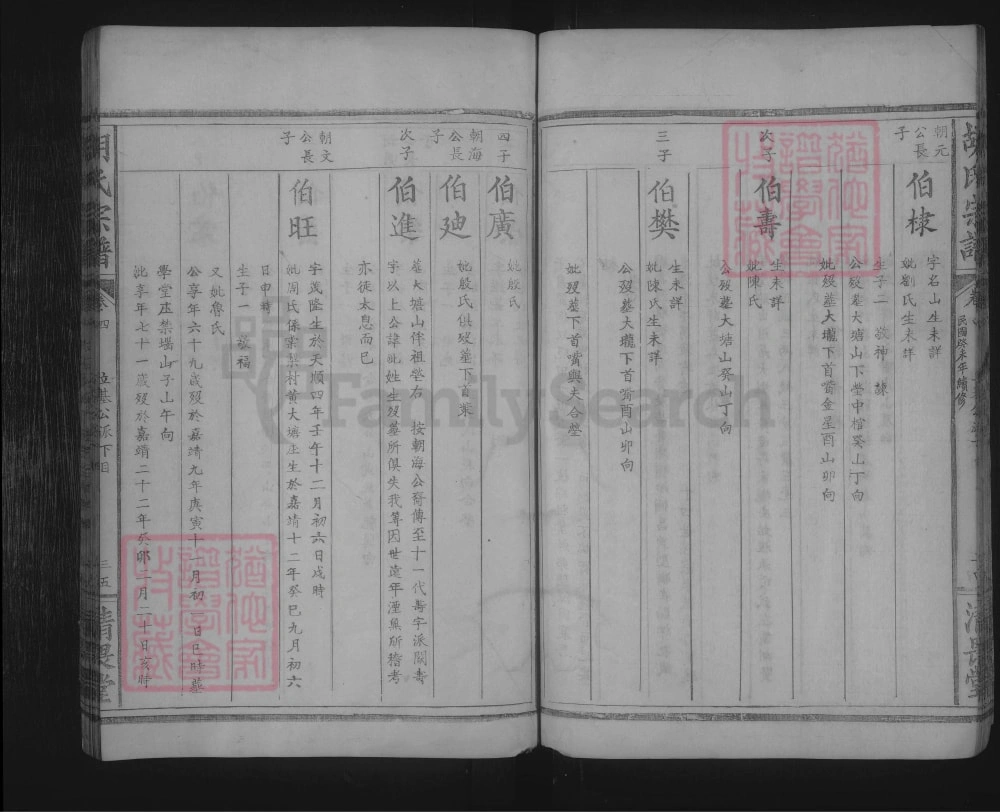 胡氏宗譜
卷
民國癸未年續修
清畏堂
朝元
公長
子
伯棣
字名山生未詳
妣劉氏生未詳
生子二 敬神 諫
公歿墓大塘山下塋中棺癸山丁向
妣歿墓大壠下首嘴金星酉山卯向
次子
伯壽
生未詳
妣陳氏
公歿墓大塘山癸山丁向
三子
伯樊
生未詳
妣陳氏生未詳
公歿墓大壠下首嘴酉山卯向
妣歿墓下首嘴與夫合塋
四子
伯廣
妣殷氏
朝海
公長
子
伯廸
妣殷氏俱歿墓下首業
次子
伯進
墓大塘山伴祖塋右 按朝海公裔傳至十一代壽字派閱壽
字以上公諱妣姓生歿墓所俱失我等因世遠年湮無所稽考
亦徒太息而已
朝文
公長
子
伯旺
字茂隆生於天順四年壬午十二月初六日戌時
妣周氏係宗梨村黃大塘庄生於嘉靖十二年癸巳九月初六
日申時
生子一 敬福
又妣魯氏
公享年六十九歲歿於嘉靖九年庚寅十一月初三日巳時墓
學堂壟禁墻山子山午向
妣享年七十一歲歿於嘉靖二十二年癸卯二月二十日亥時
胡氏宗譜
卷四
位基公派下目
三五
清畏堂
FamilySearch